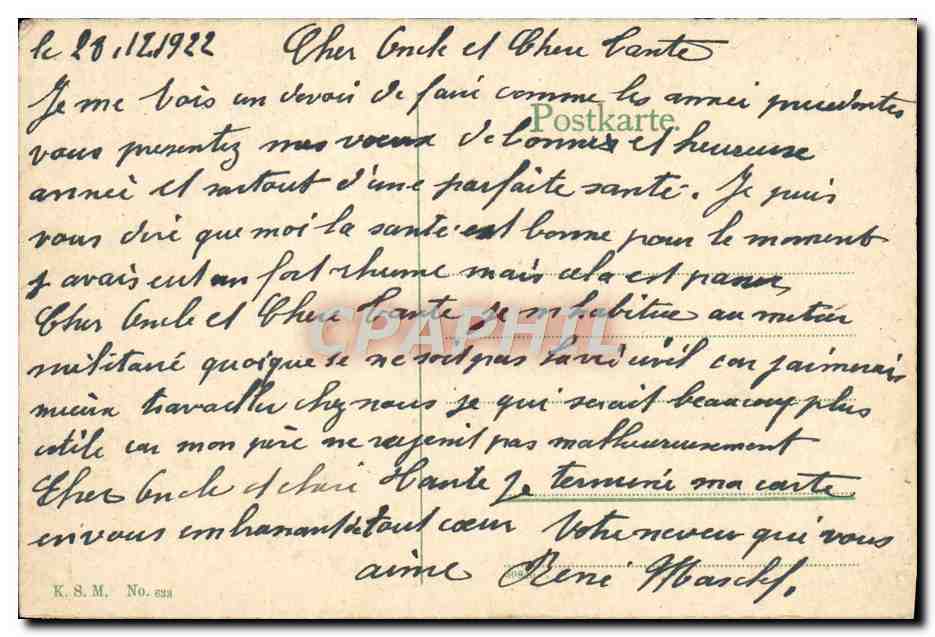 le 28.12.1922 Cher Oncle et Chere Tante
Je me vois un devoir de faire comme les année precedentes
Postkarte.
vous presentez mes voeux de bonnes et heureuse
année et surtout d'une parfaite sante. Je puis
vous dire que moi la sante est bonne pour le moment
j avais eut un fort rhume mais cela est passer
Cher Oncle et Chere Tante je m habitue au metier
CPAPHIL
militaire quoique se ne soit pas la vie civil car j aimerais
mieux travailler chez nous se qui serait beaucoup plus
utile car mon père ne rajenit pas malheureusement
Cher Oncle et chere Tante je termine ma carte
en vous embrassant de tout cœur Votre neveu qui vous
aime René
K. S. M. No. 633